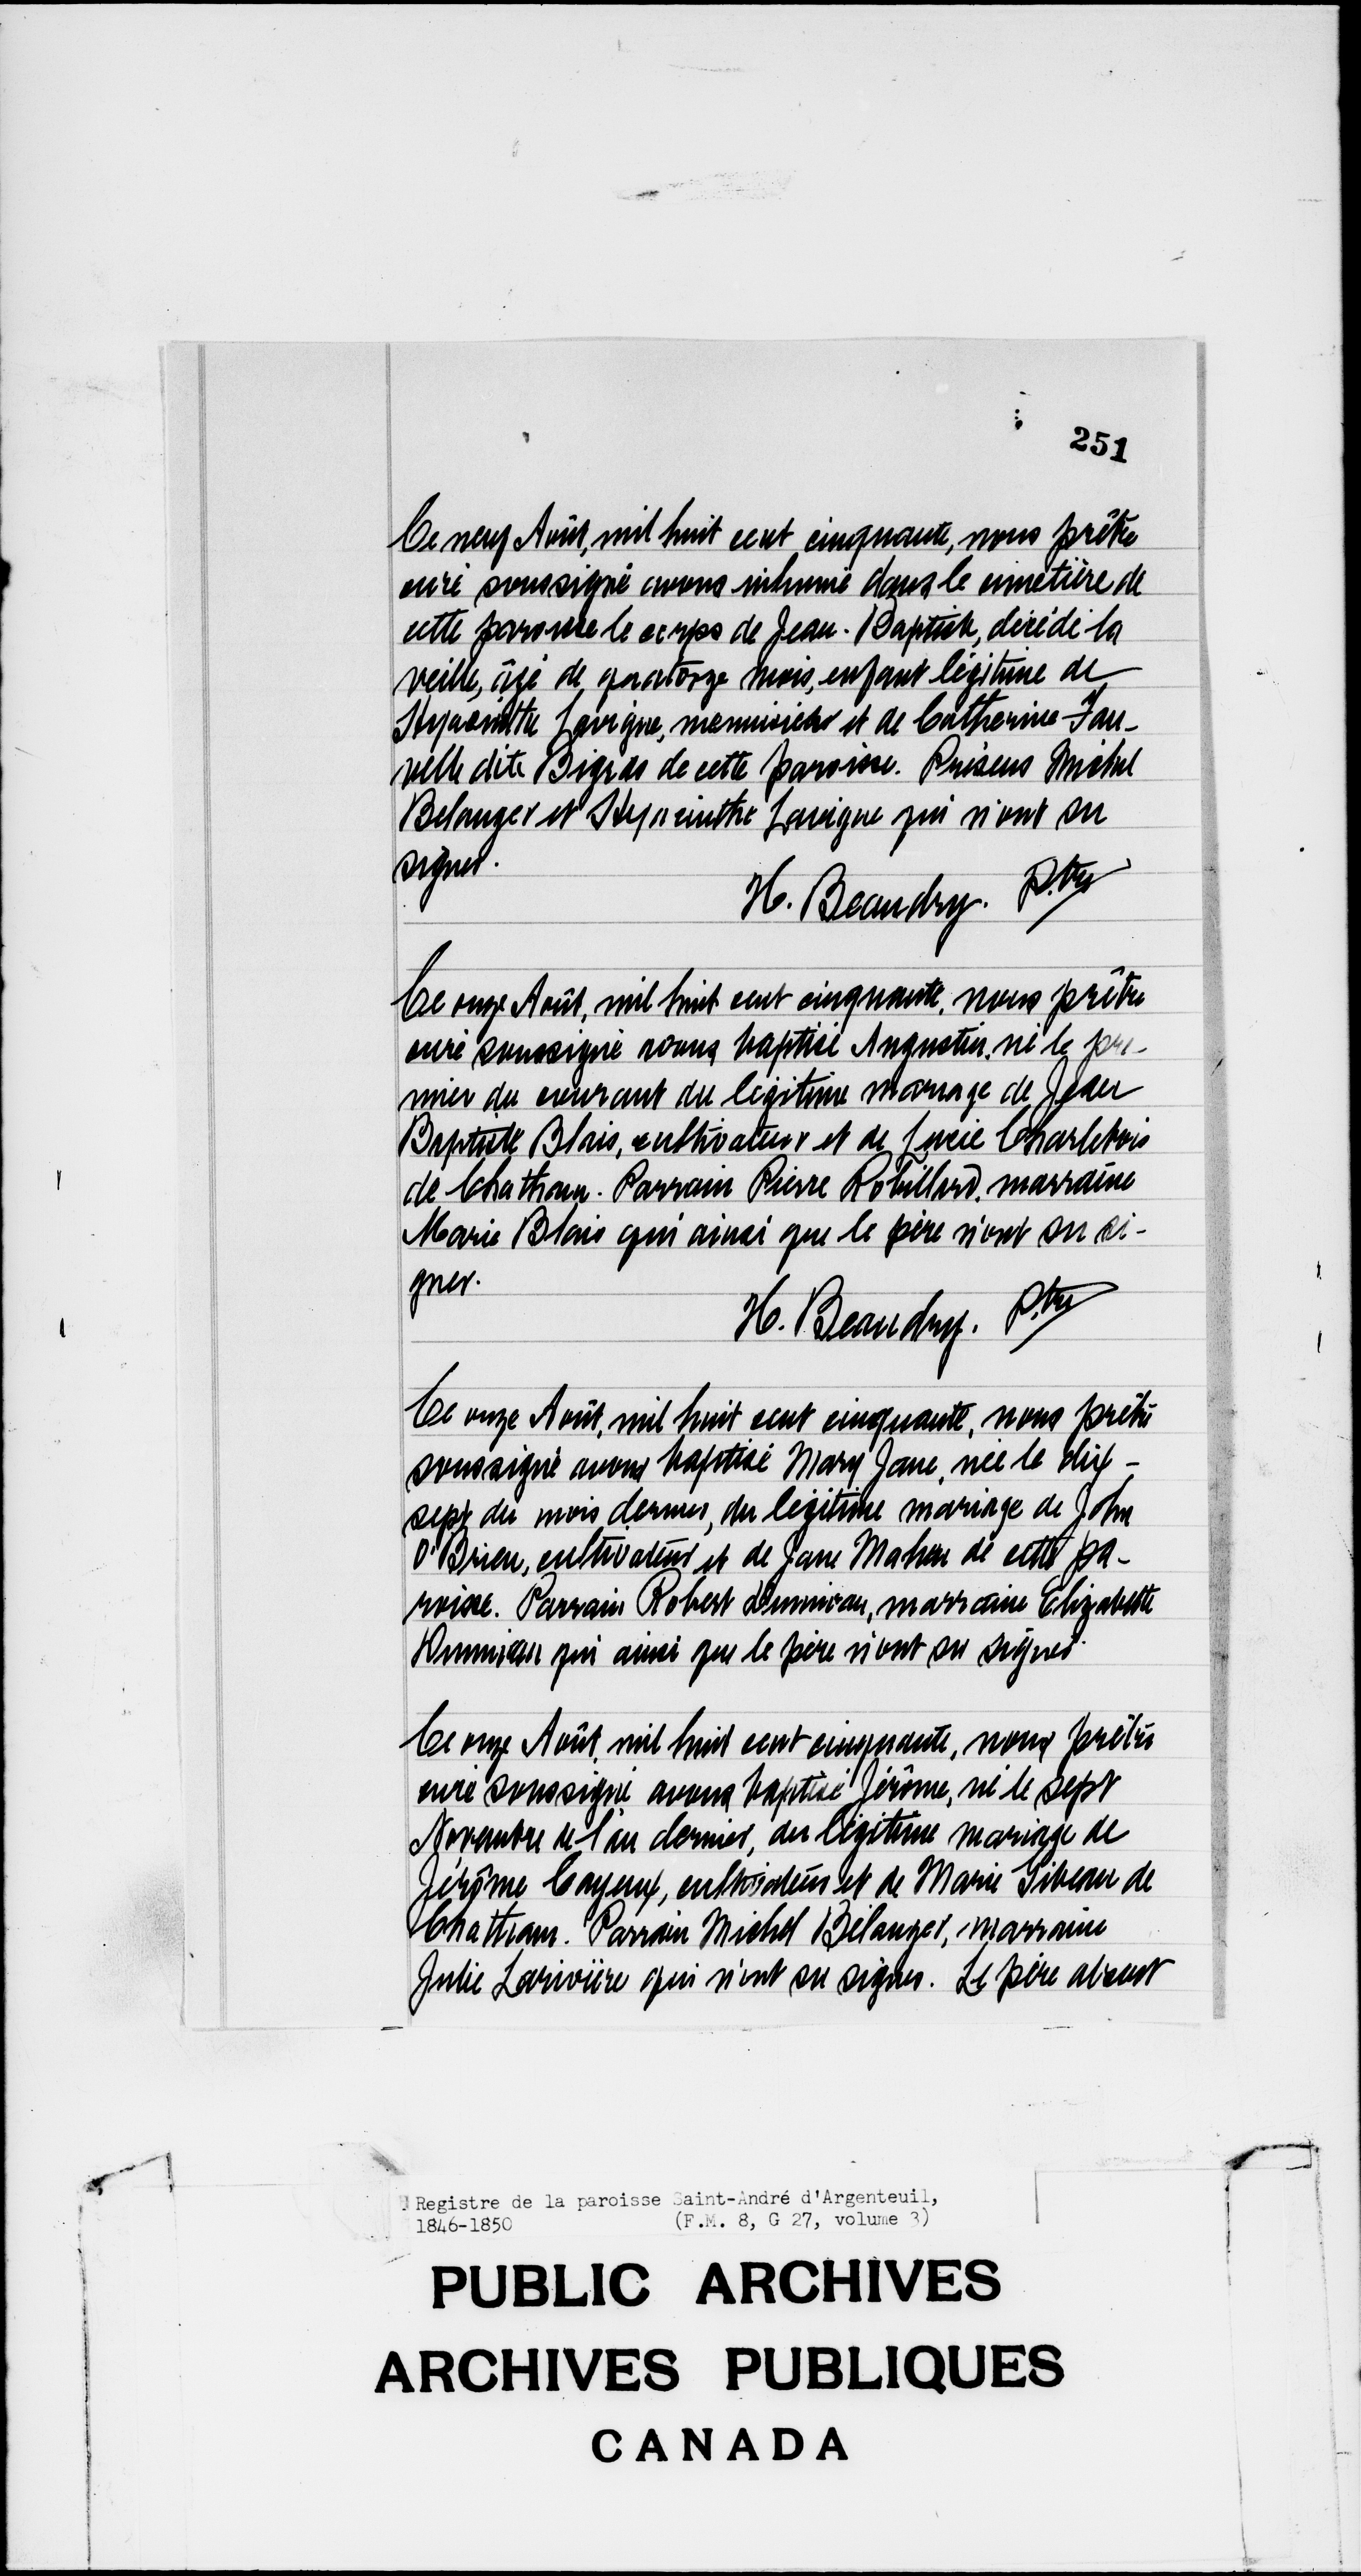 251
Ce neuf Août, mil huit cent cinquante, nous prêtre
curé soussigné avons inhumé dans le cimetière de
cette paroisse le corps de Jean-Baptiste, décédé la
veille, âgé de quatorze mois, enfant légitime de
Hyacinthe Lavigne, menuisier et de Catherine Fau-
velle dite Bigras de cette paroisse. Présens Michel
Belanger et Hyacinthe Lavigne qui n'ont su
signer.
H. Beaudry. Ptre
Ce onze Août, mil huit cent cinquante, nous prêtre
curé soussigné avons baptisé Augustin, né le pre-
mier du courant du légitime mariage de Jean
Baptiste Blais, cultivateur et de Lucie Charlebois
de Chatham. Parrain Pierre Robillard, marraine
Marie Blais qui ainsi que le père n'ont su si-
gner.
H. Beaudry. Ptre
Ce onze Août, mil huit cent cinquante, nous prêtre
soussigné avons baptisé Mary Jane, née le dix-
sept du mois dernier, du légitime mariage de John
O'Brien, cultivateur et de Jane Mahen de cette pa-
roisse. Parrain Robert, marraine Elizabeth
qui ainsi que le père n'ont su signer.
Ce onze Août, mil huit cent cinquante, nous prêtre
curé soussigné avons baptisé Jérôme, né le sept
Novembre de l'an dernier, du légitime mariage de
Jérôme Cayeux, cultivateur et de Marie Gibeau de
Chatham. Parrain Michel Bélanger, marraine
Julie Larivière qui n'ont su signer. Le père absent
Registre de la paroisse Saint-André d'Argenteuil,
1846-1850 (F.M. 8, G 27, volume 3)
PUBLIC ARCHIVES
ARCHIVES PUBLIQUES
CANADA